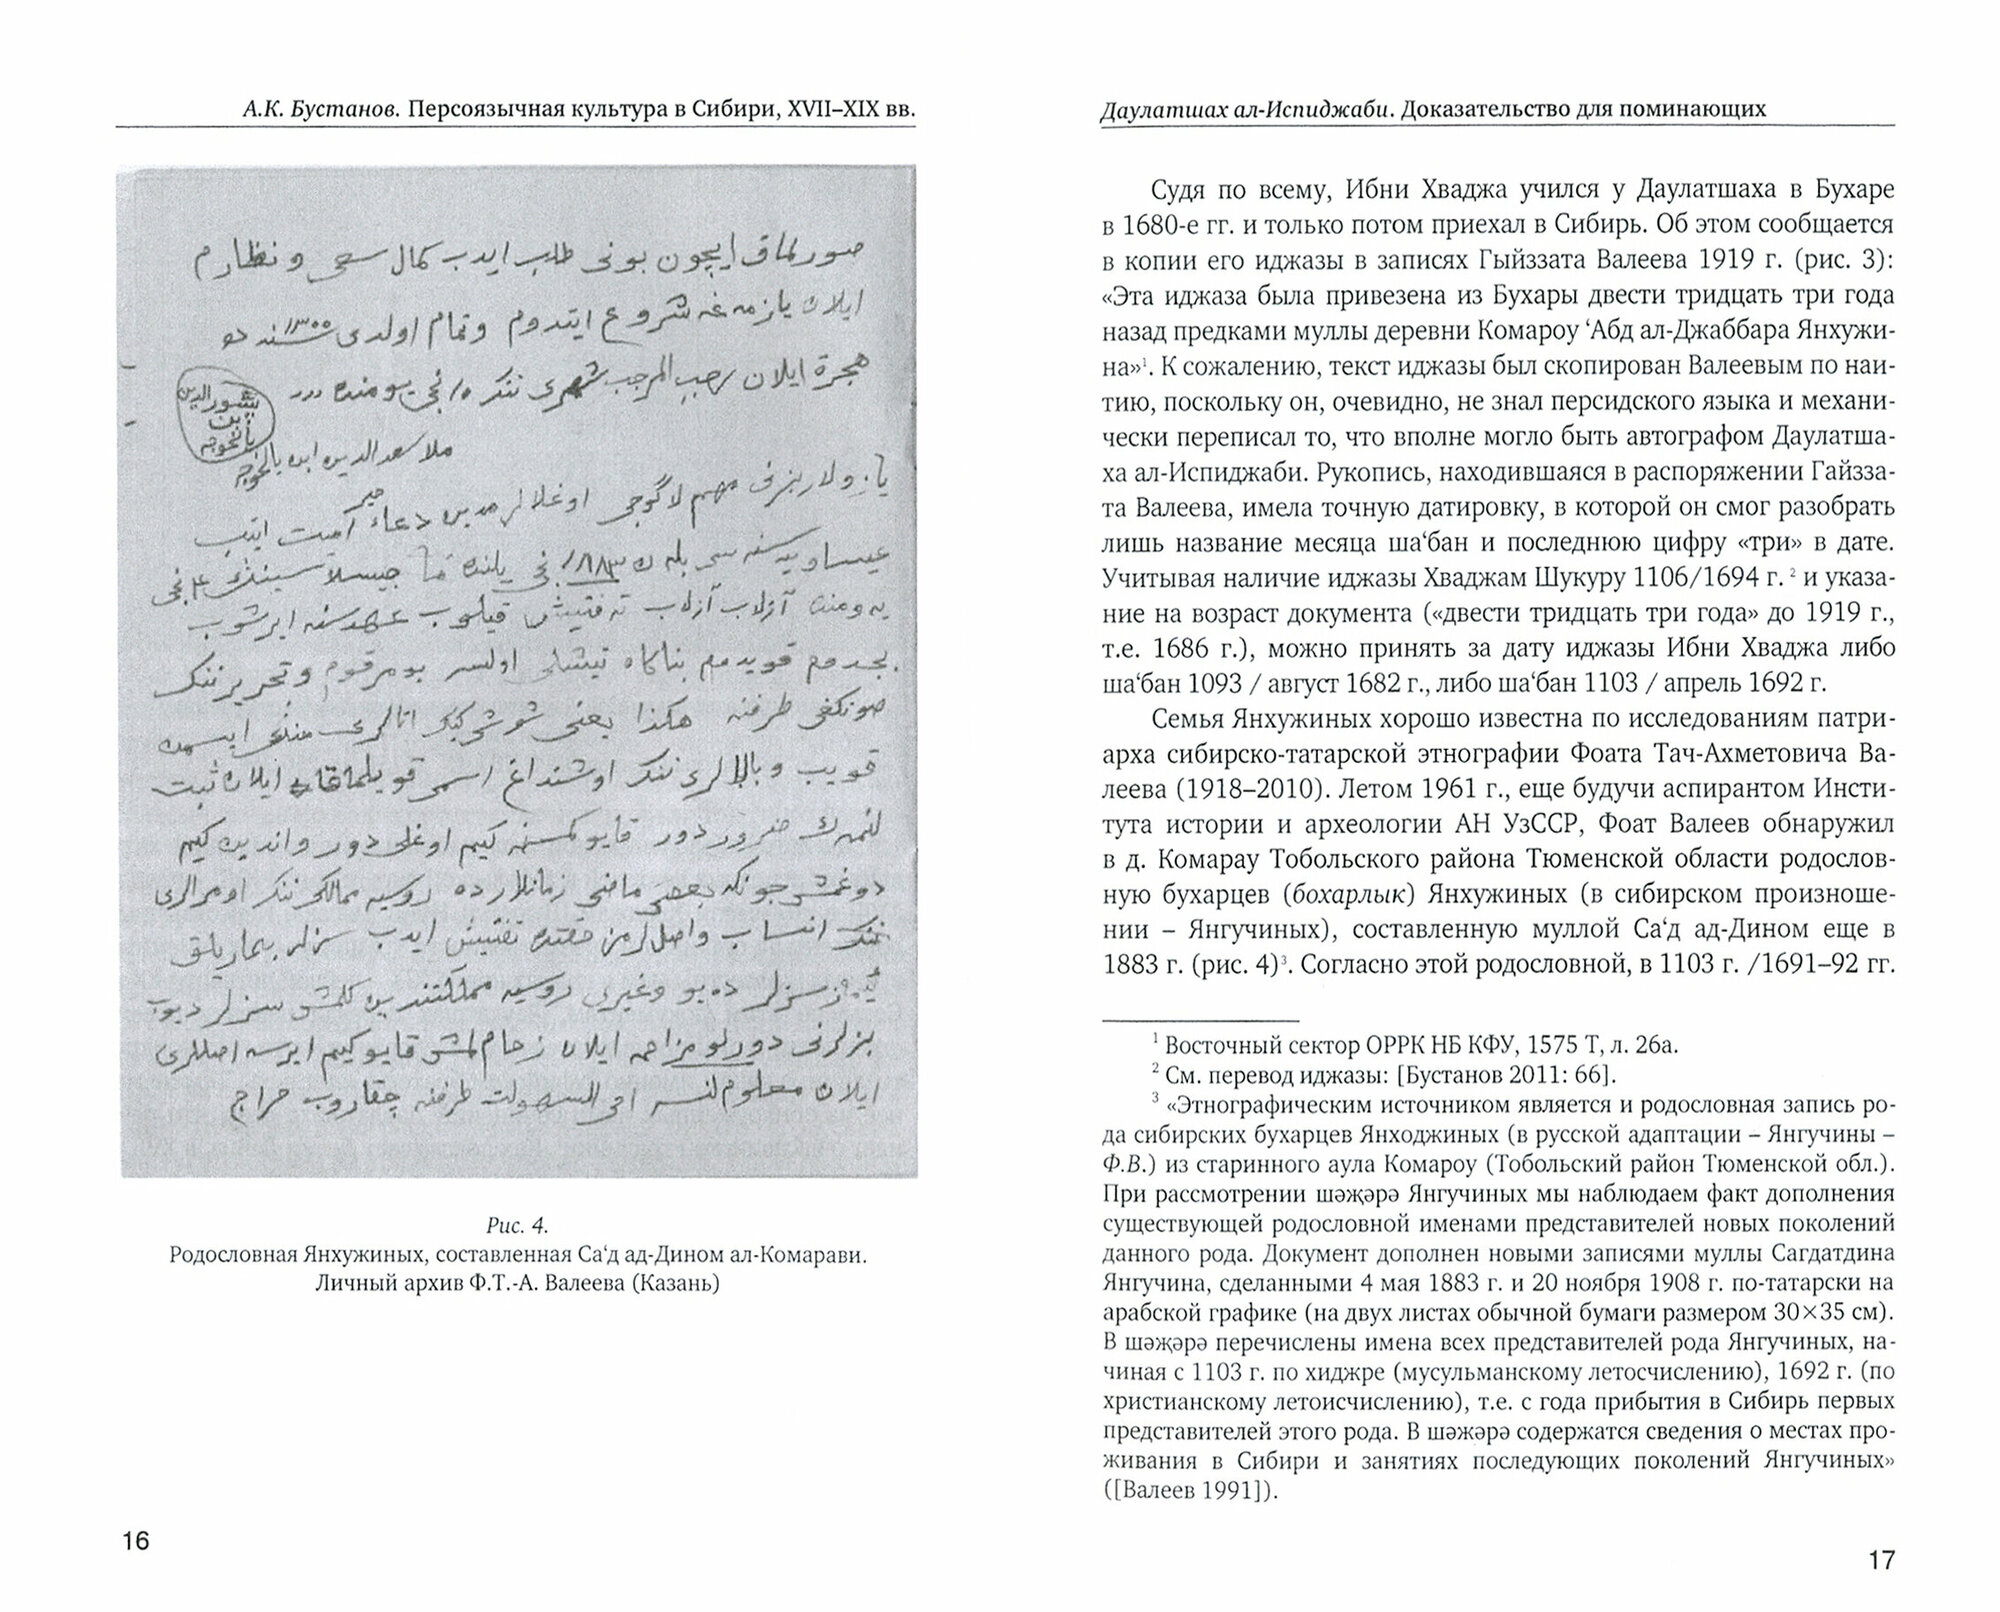 А.К. Бустанов. Персоязычная культура в Сибири, XVII–XIX вв.
صورلماق ایچون بونی طلب ایدب کمال سعی و نظارم
ایلان یازمه غه شروع ایتدوم وتمام اولدی ١٣٠٠ سنده
هجرة ایلان رجب المرجب شهری ننک
ملا سعد الدین ابن یانخوجه
اوغلا لرمدین دعاء
عیساویه سنه سی بله ن ١٨٨٣ نجی یلنده
قیلوب
اولسه بو مرقوم و تحریر ننک
صونکغی طرفنه هکذا یعنی شوشی کبک اتالری
قویب و بالالری ننک اوشنداغ اسمی قویلماقلق ایلان ثبت
ضرور دور قایو کمسنه کیم اوغلی دور واندین کیم
دوغمش چونکه بعضی ماضی زمانلارده روسیه ممالک ننک اومرالری
تفتیش ایدب سزلر
سزلر ده بو وغیری روسیه مملکتندین کلمش سزلر دیوب
بزلرنی دورلو مزاحمه ایلان قایو کیم ایرسه اصللری
ایلان معلوم لنسه طرفنه چقاروب
Рис. 4.
Родословная Янхужиных, составленная Са‘д ад-Дином ал-Комарави.
Личный архив Ф.Т.-А. Валеева (Казань)
16
Даулатшах ал-Испиджаби. Доказательство для поминающих
Судя по всему, Ибни Хваджа учился у Даулатшаха в Бухаре
в 1680-е гг. и только потом приехал в Сибирь. Об этом сообщается
в копии его иджазы в записях Гыйззата Валеева 1919 г. (рис. 3):
«Эта иджаза была привезена из Бухары двести тридцать три года
назад предками муллы деревни Комароу ‘Абд ал-Джаббара Янхужи-
на»¹. К сожалению, текст иджазы был скопирован Валеевым по наи-
тию, поскольку он, очевидно, не знал персидского языка и механи-
чески переписал то, что вполне могло быть автографом Даулатша-
ха ал-Испиджаби. Рукопись, находившаяся в распоряжении Гайзза-
та Валеева, имела точную датировку, в которой он смог разобрать
лишь название месяца ша‘бан и последнюю цифру «три» в дате.
Учитывая наличие иджазы Хваджам Шукуру 1106/1694 г. ² и указа-
ние на возраст документа («двести тридцать три года» до 1919 г.,
т.е. 1686 г.), можно принять за дату иджазы Ибни Хваджа либо
ша‘бан 1093 / август 1682 г., либо ша‘бан 1103 / апрель 1692 г.
Семья Янхужиных хорошо известна по исследованиям патри-
арха сибирско-татарской этнографии Фоата Тач-Ахметовича Ва-
леева (1918–2010). Летом 1961 г., еще будучи аспирантом Инсти-
тута истории и археологии АН УзССР, Фоат Валеев обнаружил
в д. Комарау Тобольского района Тюменской области родослов-
ную бухарцев (бохарлык) Янхужиных (в сибирском произноше-
нии – Янгучиных), составленную муллой Са‘д ад-Дином еще в
1883 г. (рис. 4)³. Согласно этой родословной, в 1103 г. /1691–92 гг.
¹ Восточный сектор ОРРК НБ КФУ, 1575 Т, л. 26а.
² См. перевод иджазы: [Бустанов 2011: 66].
³ «Этнографическим источником является и родословная запись ро-
да сибирских бухарцев Янходжиных (в русской адаптации – Янгучины –
Ф.В.) из старинного аула Комароу (Тобольский район Тюменской обл.).
При рассмотрении шәҗәрә Янгучиных мы наблюдаем факт дополнения
существующей родословной именами представителей новых поколений
данного рода. Документ дополнен новыми записями муллы Сагдатдина
Янгучина, сделанными 4 мая 1883 г. и 20 ноября 1908 г. по-татарски на
арабской графике (на двух листах обычной бумаги размером 30×35 см).
В шәҗәрә перечислены имена всех представителей рода Янгучиных, на-
чиная с 1103 г. по хиджре (мусульманскому летосчислению), 1692 г. (по
христианскому летоисчислению), т.е. с года прибытия в Сибирь первых
представителей этого рода. В шәжәрә содержатся сведения о местах про-
живания в Сибири и занятиях последующих поколений Янгучиных»
([Валеев 1991]).
17